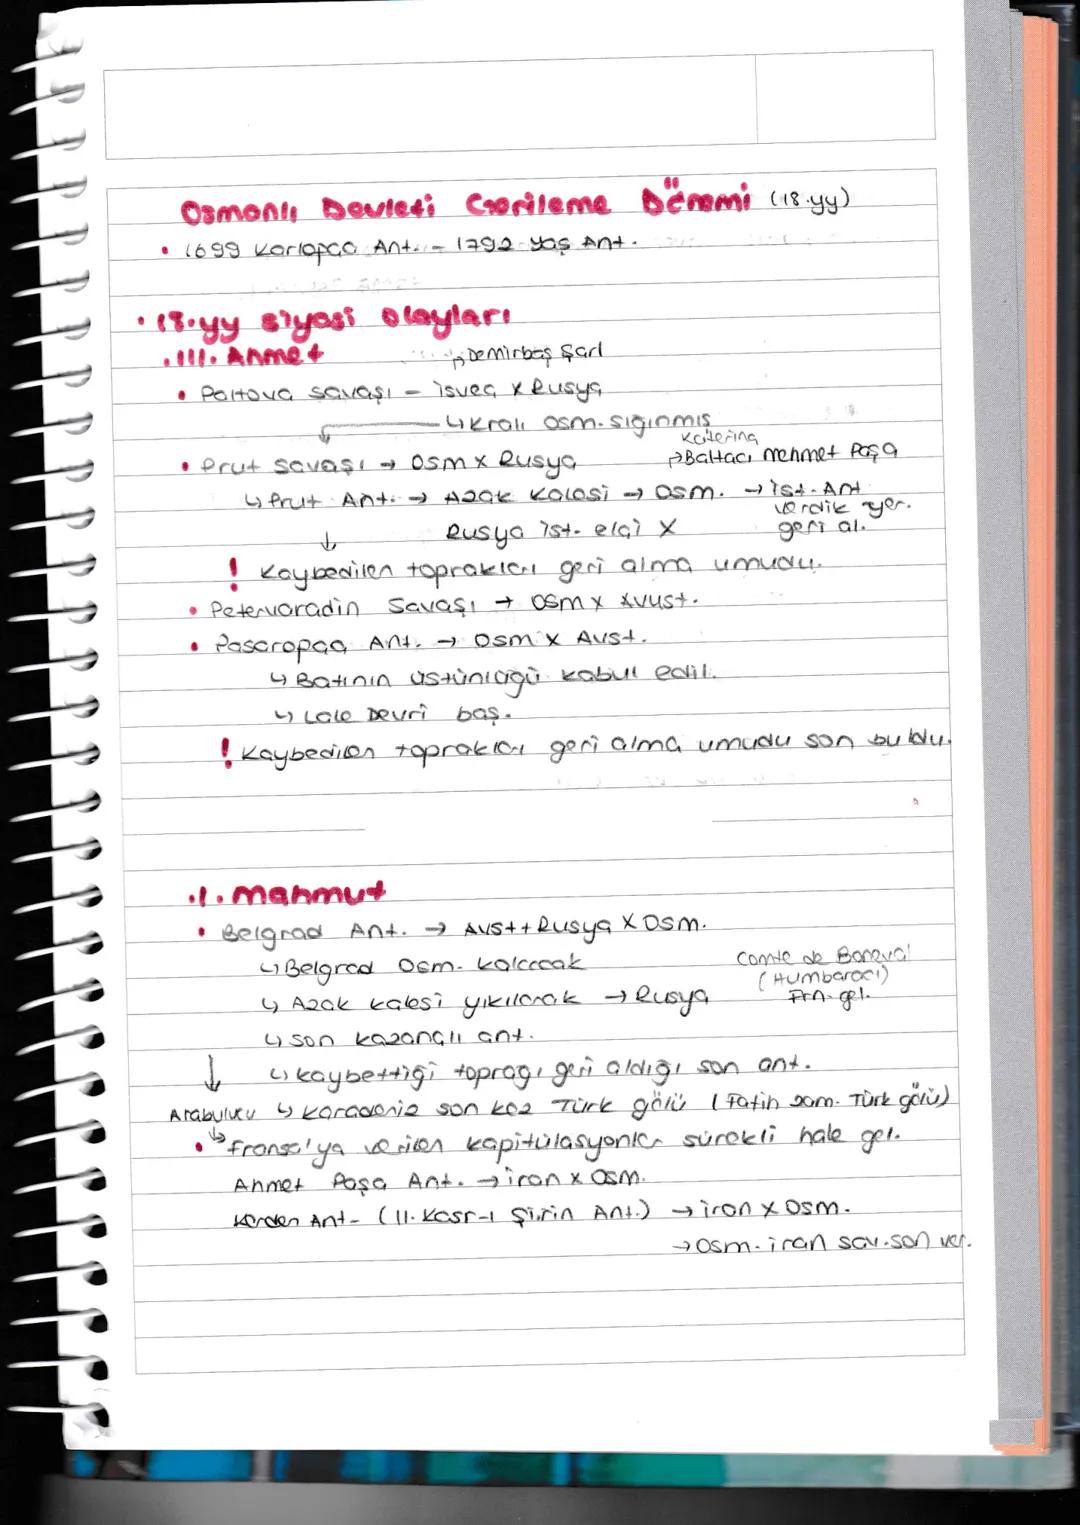 Osmanlı Devleti Gerileme Dönemi (18.yy)
• 1699 Karlofça Ant. - 1792 Yaş Ant.
• 18.yy siyasi olayları
• III. Ahmet
↳ Demirbaş Şarl
• Poltova savaşı - isveç x Rusya
↳ kralı osm. sığınmış
Katerina
• Prut savaşı → Osm x Rusya ↱ Baltacı Mehmet Paşa
↳ Prut Ant. → Azak Kalesi → Osm. → ist. Ant.
verdik yer.
Rusya ist. elçi X geri al.
! Kaybedilen toprakları geri alma umudu.
• Petervaradin Savaşı → Osm x Avust.
• Pasarofça Ant. → Osm x Avst.
↳ Batının üstünlüğü kabul edil.
↳ Lale Devri baş.
! Kaybedilen toprakları geri alma umudu son buldu.
• I. Mahmut
• Belgrad Ant. → Avst + Rusya X Osm.
↳ Belgrad Osm. kalacak Comte de Boneval
↳ Azak kalesi yıkılarak → Rusya (Humbaracı)
gel.
↳ son kazançlı ant.
↳ kaybettiği toprağı geri aldığı son ant.
Arabulucu ↳ Karadeniz son kez Türk gölü (Fatih zam. Türk gölü)
• ↳ Fransa'ya verilen kapitülasyonlar sürekli hale gel.
Ahmet Paşa Ant. → iran x Osm.
Kerden Ant - (II. Kasr-ı Şirin Ant.) → iran x Osm.
→ Osm. iran sav. son ver.